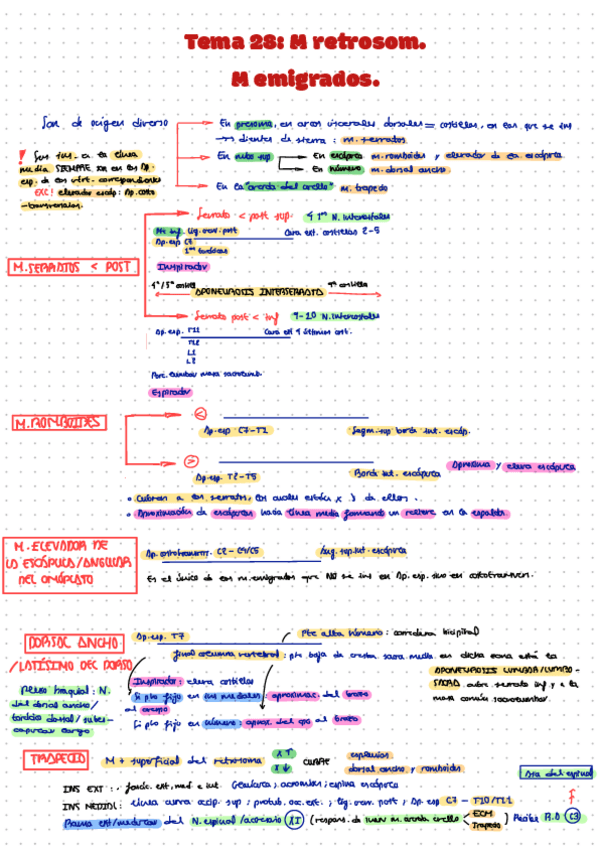 Tema 28: M retrosom.
M emigrados.
Son de origen diverso
En presoma, en arcos viscerales dorsales = costillas, en las que se ins
→ dientes de sierra : m. serratos
En mb sup
En escápula m. romboides y elevador de la escápula
En húmero m. dorsal ancho
En la "aorda del cuello" m. trapecio
! Sus ins. en la línea
media SIEMPRE son en las Ap.
esp. de las vért. correspondientes
EXC! elevador escáp: Ap. costo
-transversas.
M. SERRATOS < POST
Serrato < post sup. 4 1os N. intercostales
Mt inf. lig. nuv. post
Ap. esp C7
1as torácicas
Cara ext. costillas 2-5
Inspirador
4ª/5ª costilla
APONEUROSIS INTERSERRATO
9ª costilla
Serrato post < inf 9-10 N. intercostales
Ap. esp. T11
T12
L1
L2
Cara ext 4 últimas cost.
Espirador
M. ROMBOIDES
<
Ap. esp C7-T1
Segm. sup borde int. escáp.
>
Ap. esp T2-T5
Borde int. escápula
Aproxima y eleva escápula
• Cubren a los serratos, los cuales están x ↓ de ellos.
• Aproximación de escápulas hacia línea media formando un relieve en la espalda
M. ELEVADOR DE
LA ESCÁPULA/ANGULAR
DEL OMÓPLATO
Ap. costotransv. C2-C4/C5
Ang. sup. int. escápula
Es el único de los m. emigrados que NO se ins en Ap. esp. sino en costotransver.
DORSAL ANCHO
/LATÍSIMO DEL DORSO
Ap. esp. T7
Pte alta húmero: corredera bicipital
final columna vertebral: pte baja de cresta sacra media en dicha zona está la
APONEUROSIS LUMBAR/LUMBO-
SACRA entre serrato inf. y a la
masa común sacrolumbar
Plexo braquial: N.
del dorsal ancho/
torácico dorsal/subes-
capular largo
Inspirador: eleva costillas
Si pto fijo en ins mediales: aproximac. del brazo
al cuerpo
Si pto fijo en húmero: aprox. del cpo al brazo
TRAPECIO
M + superficial del retrosoma
x ↑
x ↓
CUBRE
esplenios
dorsal ancho y romboides
INS EXT: • fascic. ext, med e int. Clavícula; acromion; espina escápula
INS MEDIAL: línea curva occip. sup; protub. occ. ext.; lig. nuv. post; Ap esp C7-T10/T11
Rama ext/medular del N. espinal/accesorio XI
ECM
Trapecio
Recibe R.A C3